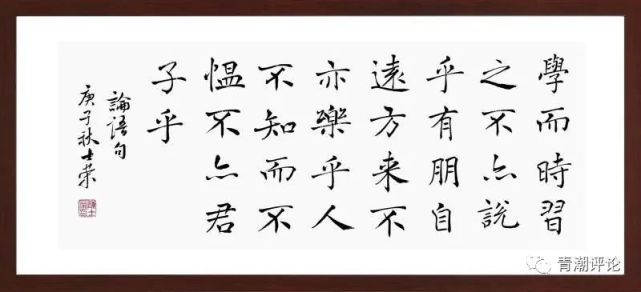 學而時習
之不亦說
乎有朋自
遠方来不
亦樂乎人
不知而不
愠不亦君
子乎
論語句
庚子秋士荣
青潮评论